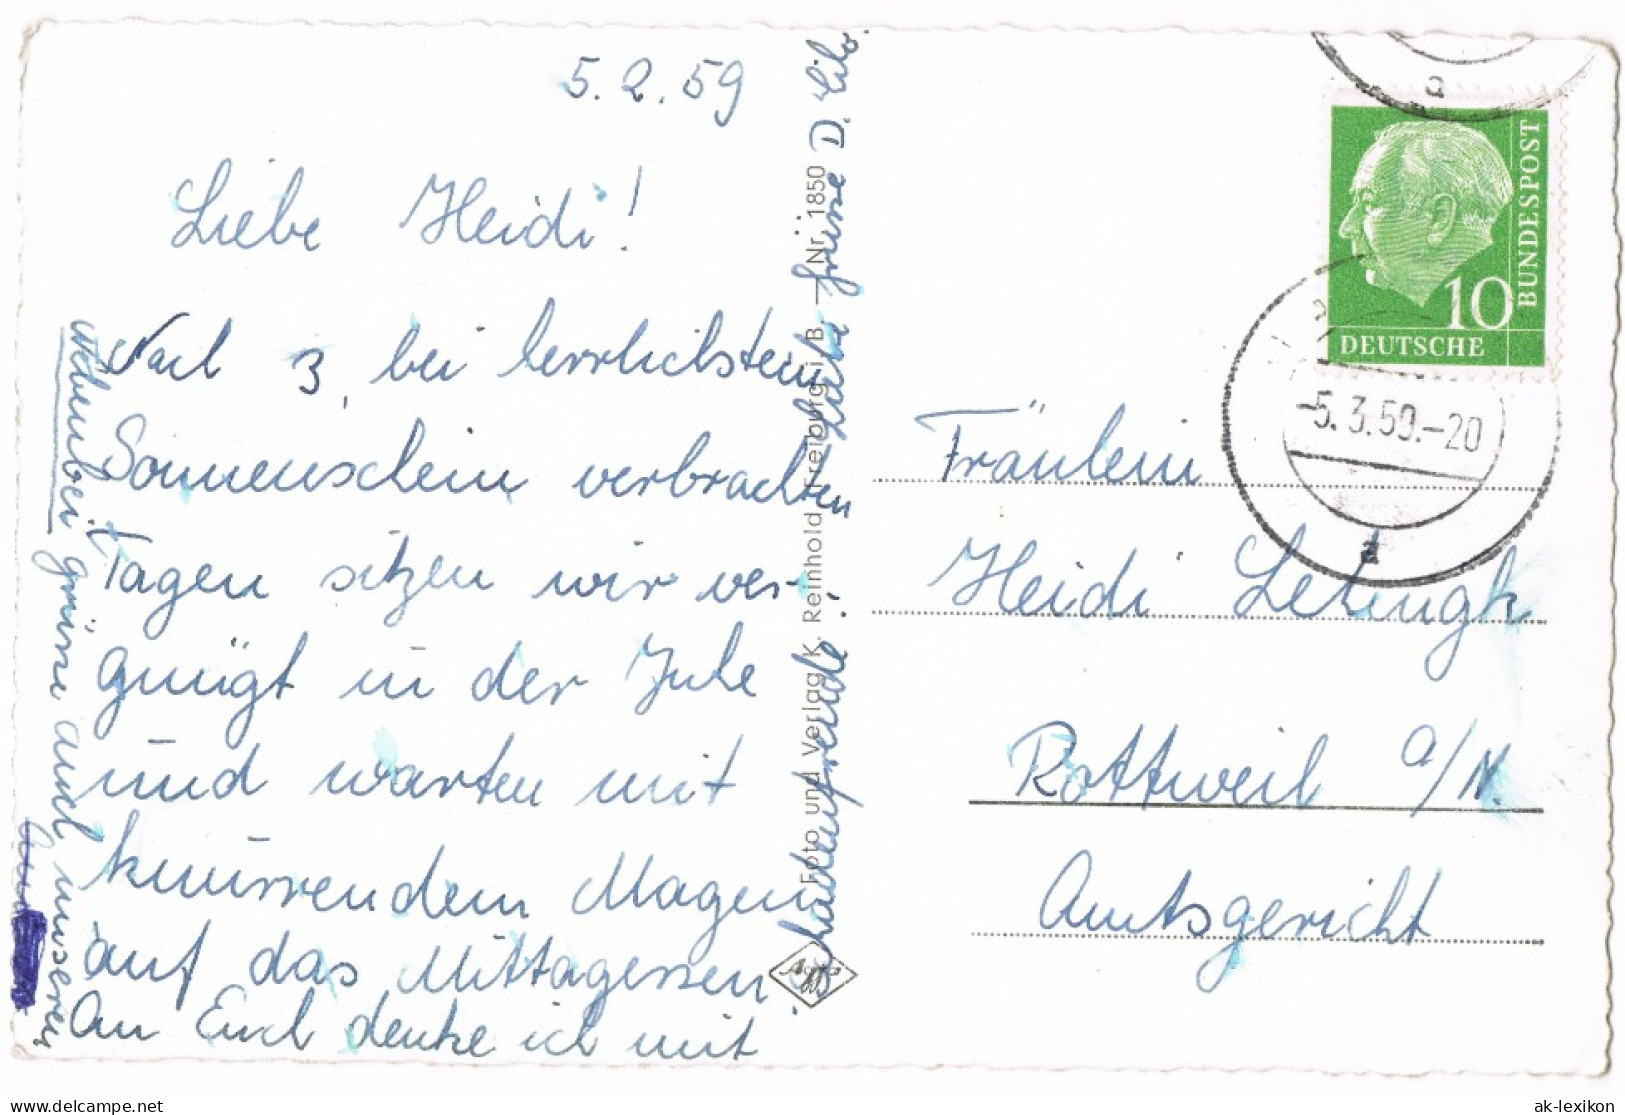 5.2.59
Liebe Heidi!
Nach 3, bei herrlichstem
Sonnenschein verbrachten
Tagen sitzen wir ver-
gnügt in der
und warten mit
knurrendem Magen
auf das Mittagessen
An Euch denke ich mit
Schadenfreude!
grüsse D.
Nebenbei grüsse auch unseren
Foto und Verlag K. Reinhold Freiburg i. B. — Nr. 1850
DEUTSCHE
BUNDESPOST
10
a
-5.3.59.-20
a
Fräulein
Heidi
Rottweil a/N.
Amtsgericht
ak-lexikon
www.delcampe.net